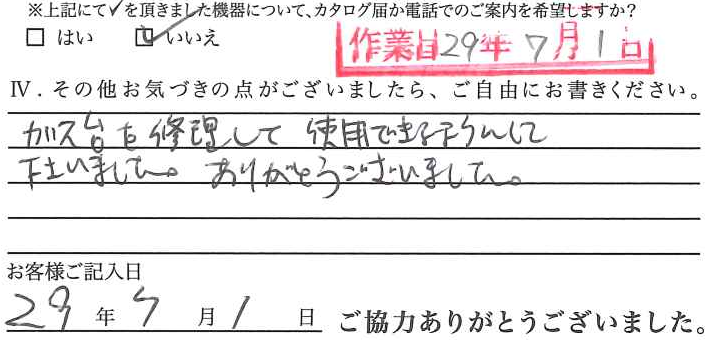 ※上記にて✓を頂きました機器について、カタログ届か電話でのご案内を希望しますか?
□ はい ☑ いいえ
作業日29年7月1日
Ⅳ.その他お気づきの点がございましたら、ご自由にお書きください。
ガス台を修理して 使用できるようにして
下さいました。ありがとうございました。
お客様ご記入日
29年7月1日 ご協力ありがとうございました。